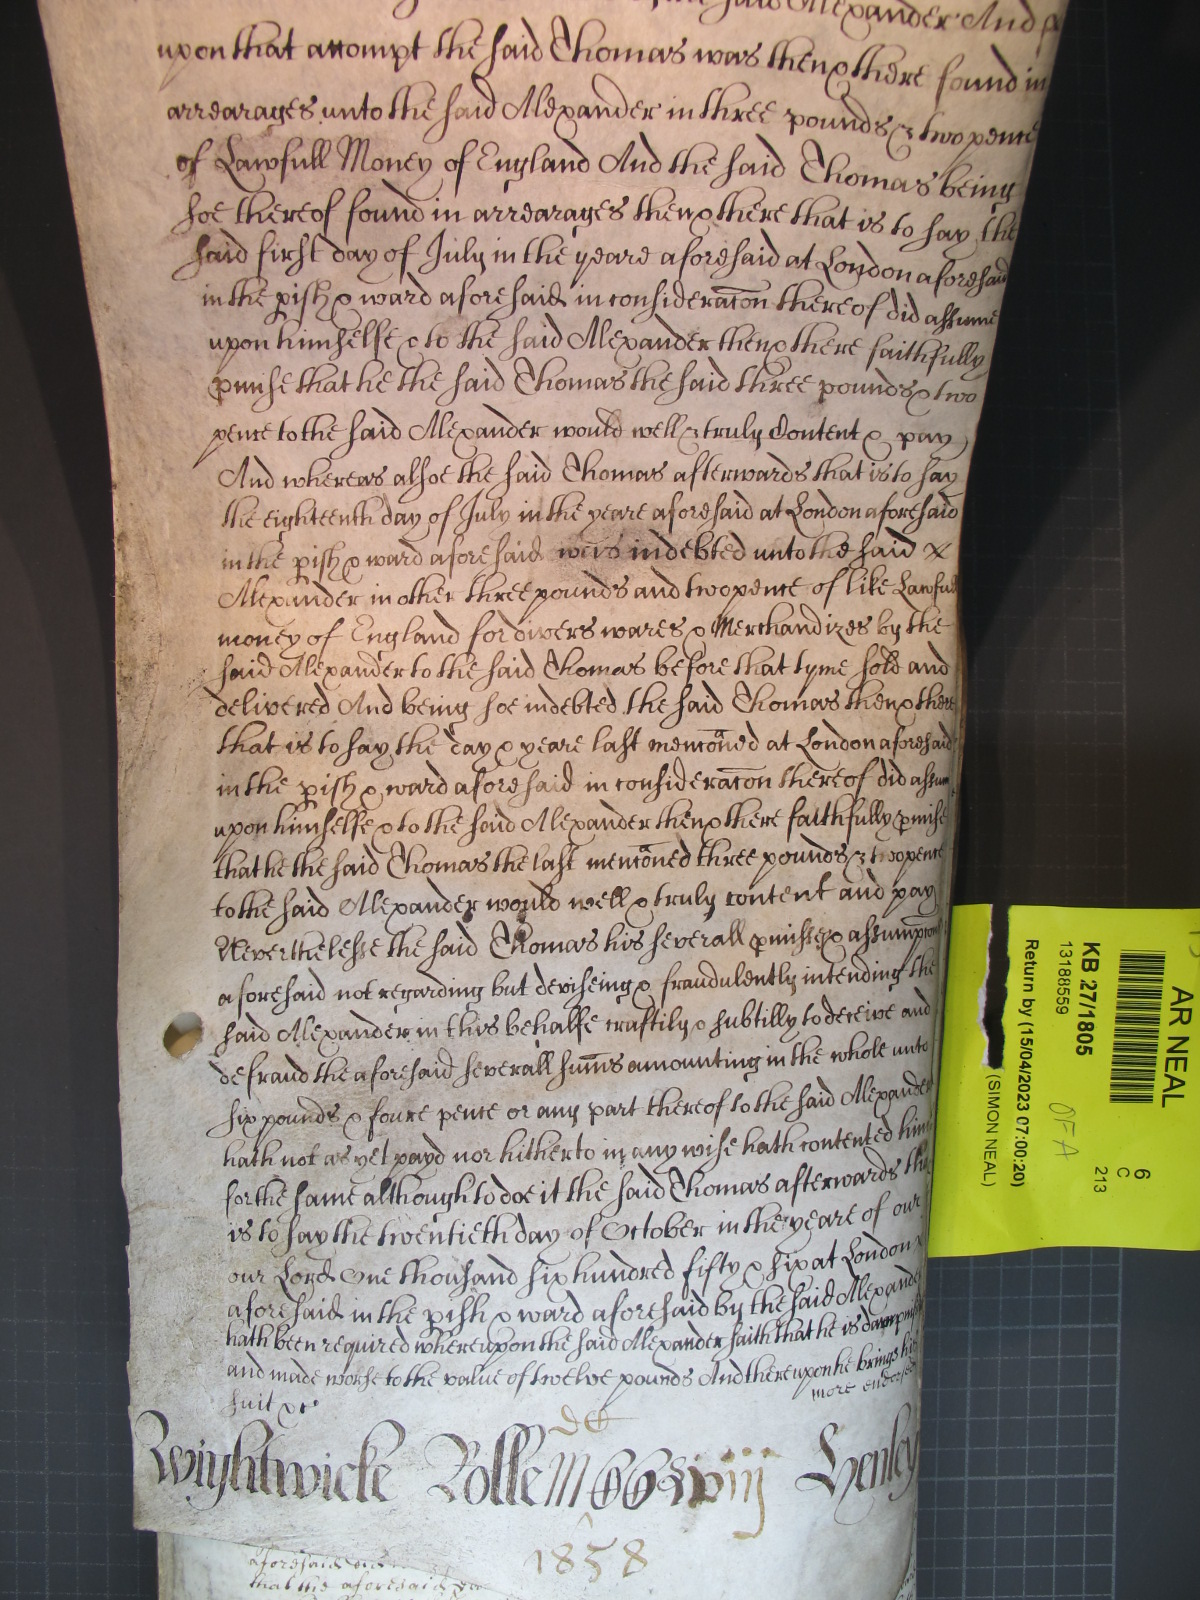 said Alexander And
upon that accompt the said Thomas was then & there found in
arrearages unto the said Alexander in three pounds & two pence
of Lawfull Money of England And the said Thomas being
soe thereof found in arrearages then & there that is to say the
said first day of July in the yeare aforesaid at London aforesaid
in the pish & ward aforesaid in consideracon thereof did assume
upon himselfe & to the said Alexander then & there faithfully
pmise that he the said Thomas the said three pounds & two
pence to the said Alexander would well & truly Content & pay
And whereas alsoe the said Thomas afterwards that is to say
the eighteenth day of July in the yeare aforesaid at London aforesaid
in the pish & ward aforesaid was indebted unto the said x
Alexander in other three pounds and two pence of like Lawfull
money of England for divers wares & Merchandizes by the
said Alexander to the said Thomas before that tyme sold and
delivered And being soe indebted the said Thomas then & there
that is to say the day & yeare last menconed at London aforesaid
in the pish & ward aforesaid in consideracon thereof did assume
upon himselfe & to the said Alexander then & there faithfully pmise
that he the said Thomas the last menconed three pounds & two pence
to the said Alexander would well & truly content and pay
Neverthelesse the said Thomas his severall pmisses & assumpcons
aforesaid not regarding but deviseing & fraudulently intending the
said Alexander in this behalfe craftily & subtilly to deceive and
defraud the aforesaid severall sums amounting in the whole unto
six pounds & foure pence or any part thereof to the said Alexander
hath not as yet payd nor hitherto in any wise hath contented him
for the same although to doe it the said Thomas afterwards that
is to say the twentieth day of October in the yeare of our
our Lord One thousand six hundred fifty & six at London
aforesaid in the pish & ward aforesaid by the said Alexander
hath been required whereupon the said Alexander saith that he is
and made worse to the value of twelve pounds And thereupon he brings his
suit &c
more endorsed
Wightwicke Rolle Henley
1858
aforesaid
that the aforesaid
AR NEAL
KB 27/1805
13188559
Return by (15/04/2023 07:00:20)
(SIMON NEAL)
6
C
213
OFA